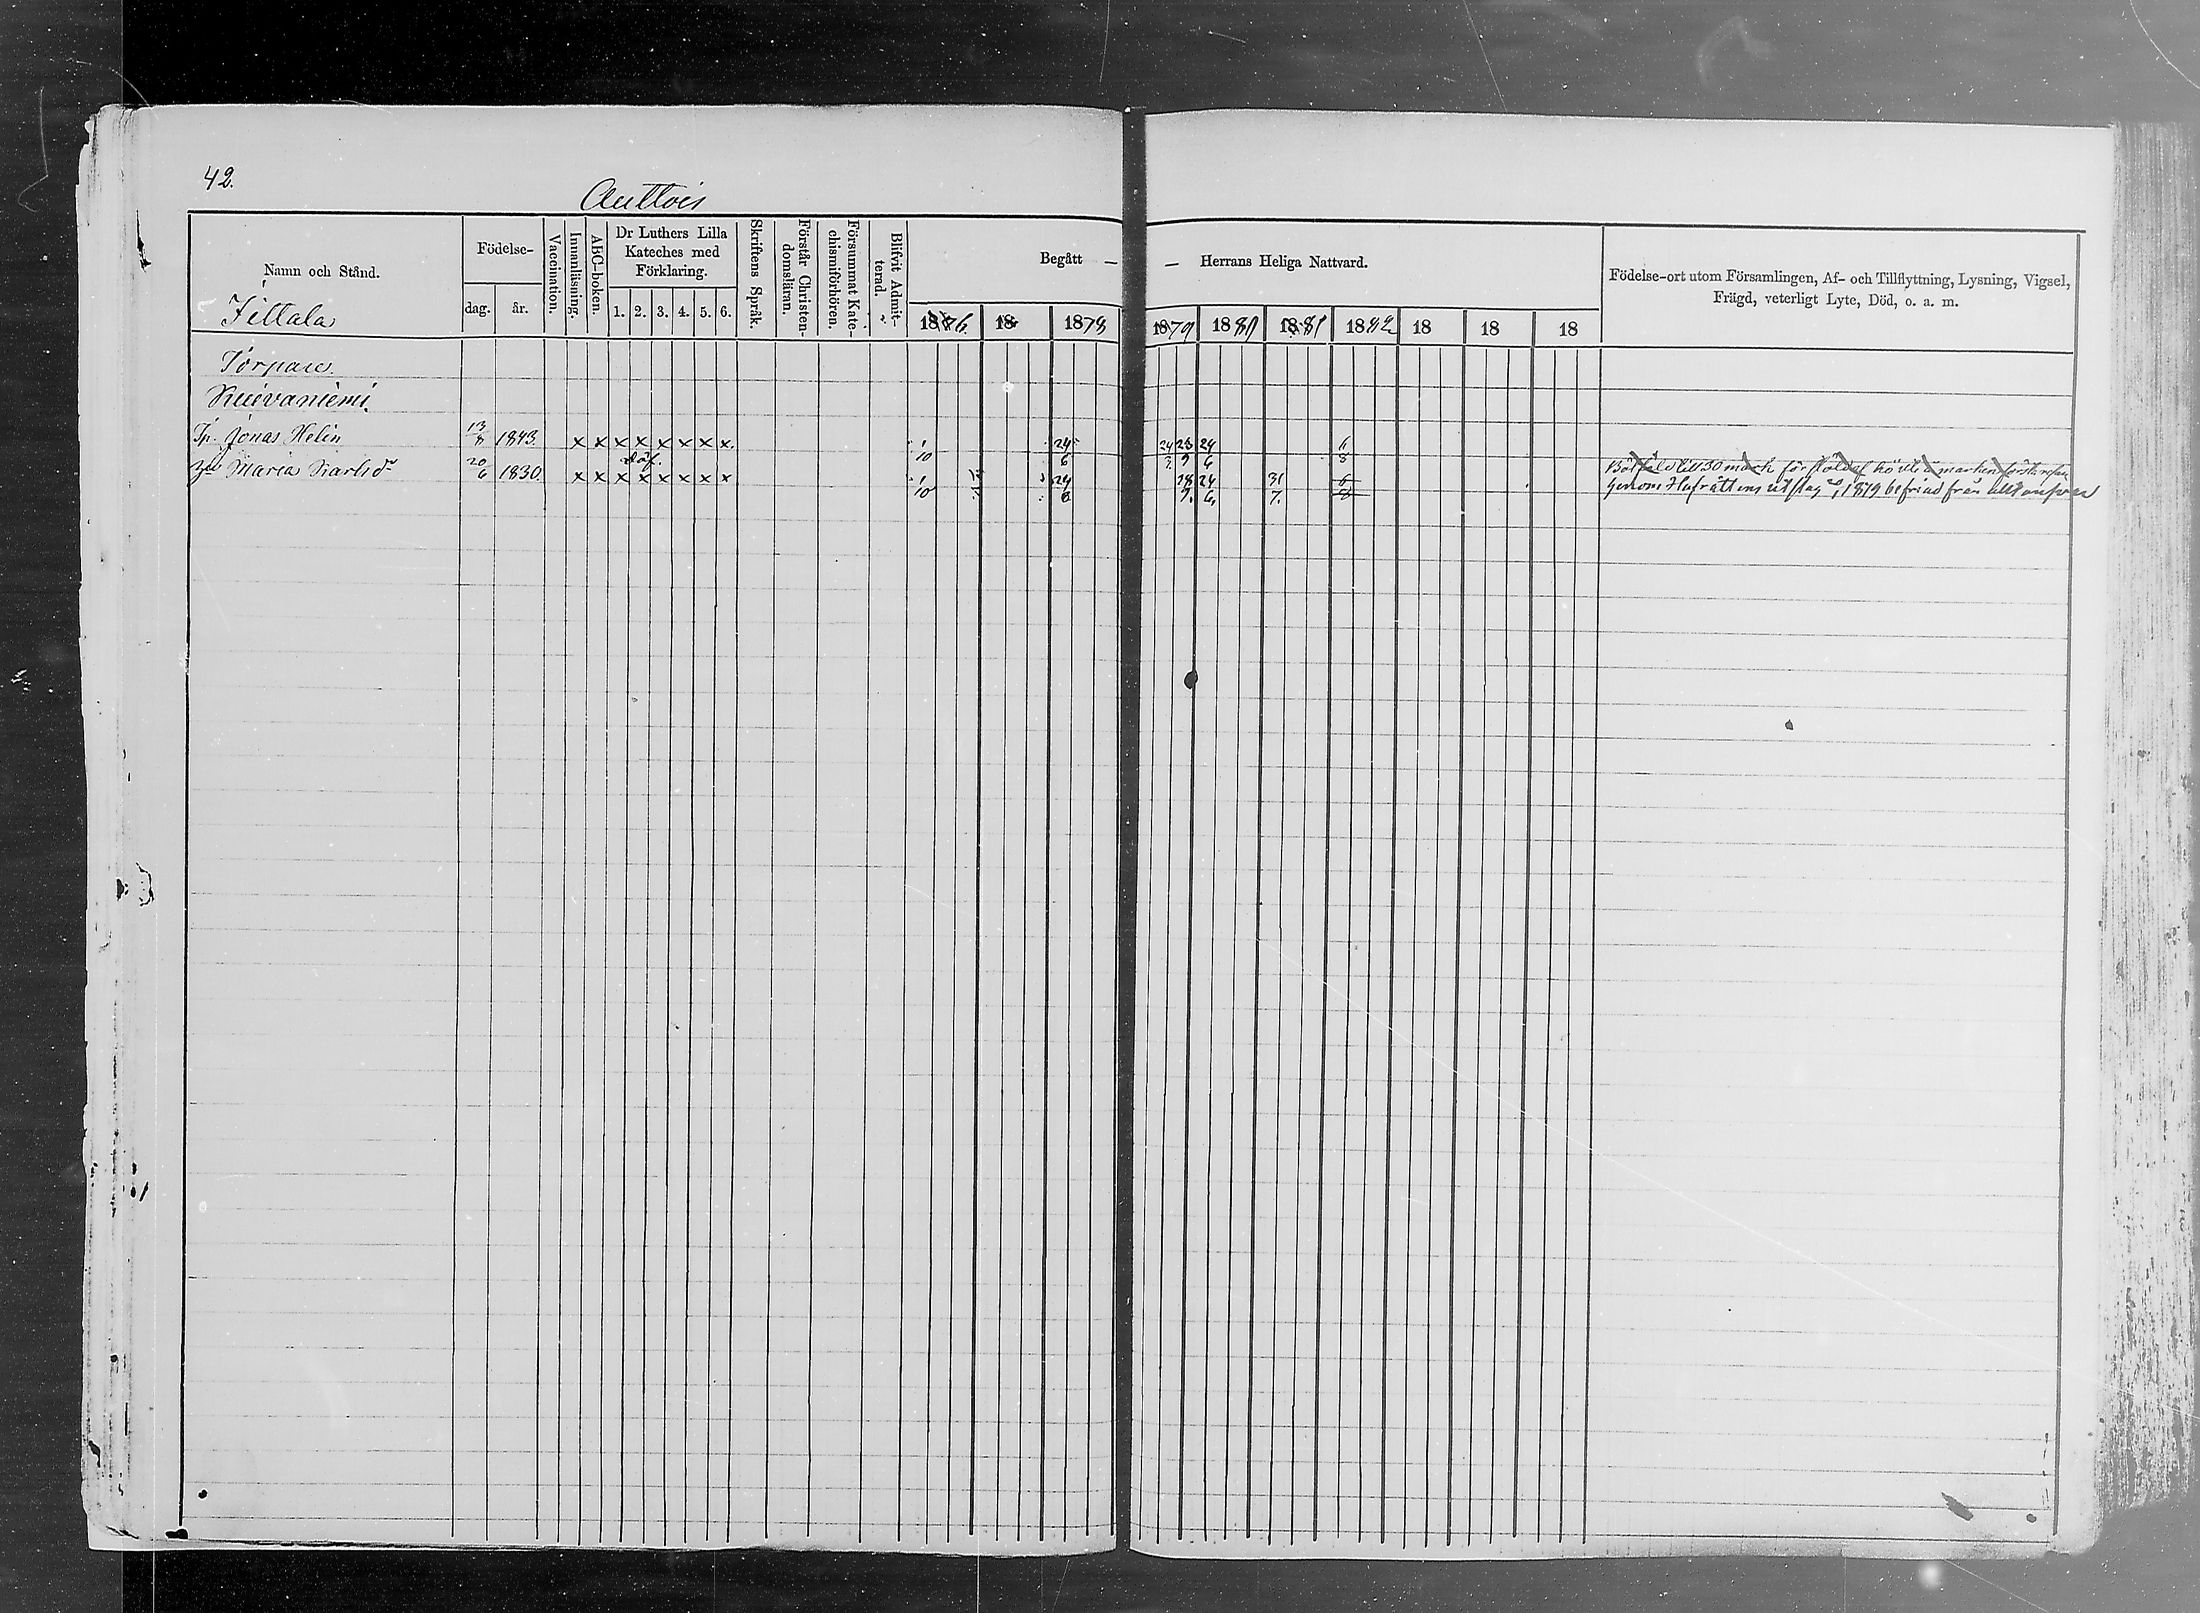 42.
Auttois
Namn och Stånd.
Födelse-
dag.
år.
Vaccination.
Innanläsning.
ABC-boken.
Dr Luthers Lilla
Kateches med
Förklaring.
1. 2. 3. 4. 5. 6.
Skriftens Språk.
Förstår Christen-
domsläran.
Försummat Kate-
chismiförhören.
Blifvit Admit-
terad.
Begått —
— Herrans Heliga Nattvard.
1876 18 1878 1879 1880 1881 1882 18 18 18
Födelse-ort utom Församlingen, Af- och Tillflyttning, Lysning, Vigsel,
Frägd, veterligt Lyte, Död, o. a. m.
Torpare.
Ruivaniemi.
Tp. Jonas Helin 13/8 1843. x x x x x x x x. 1/10 24/6 24 28/9 24/6 6/8
Maria Karlsdr 20/6 1830. döf. x x x x x x x x 1/10 24/6 28/9. 24/6. 31/7. 6/8
till 30 mark för
Genom Hofrättens utslag 1879 befriad från